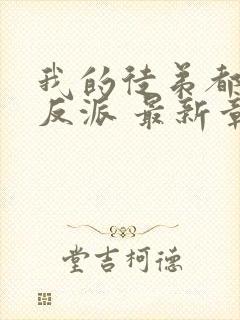 我的徒弟都
反派 最新章
堂吉柯德